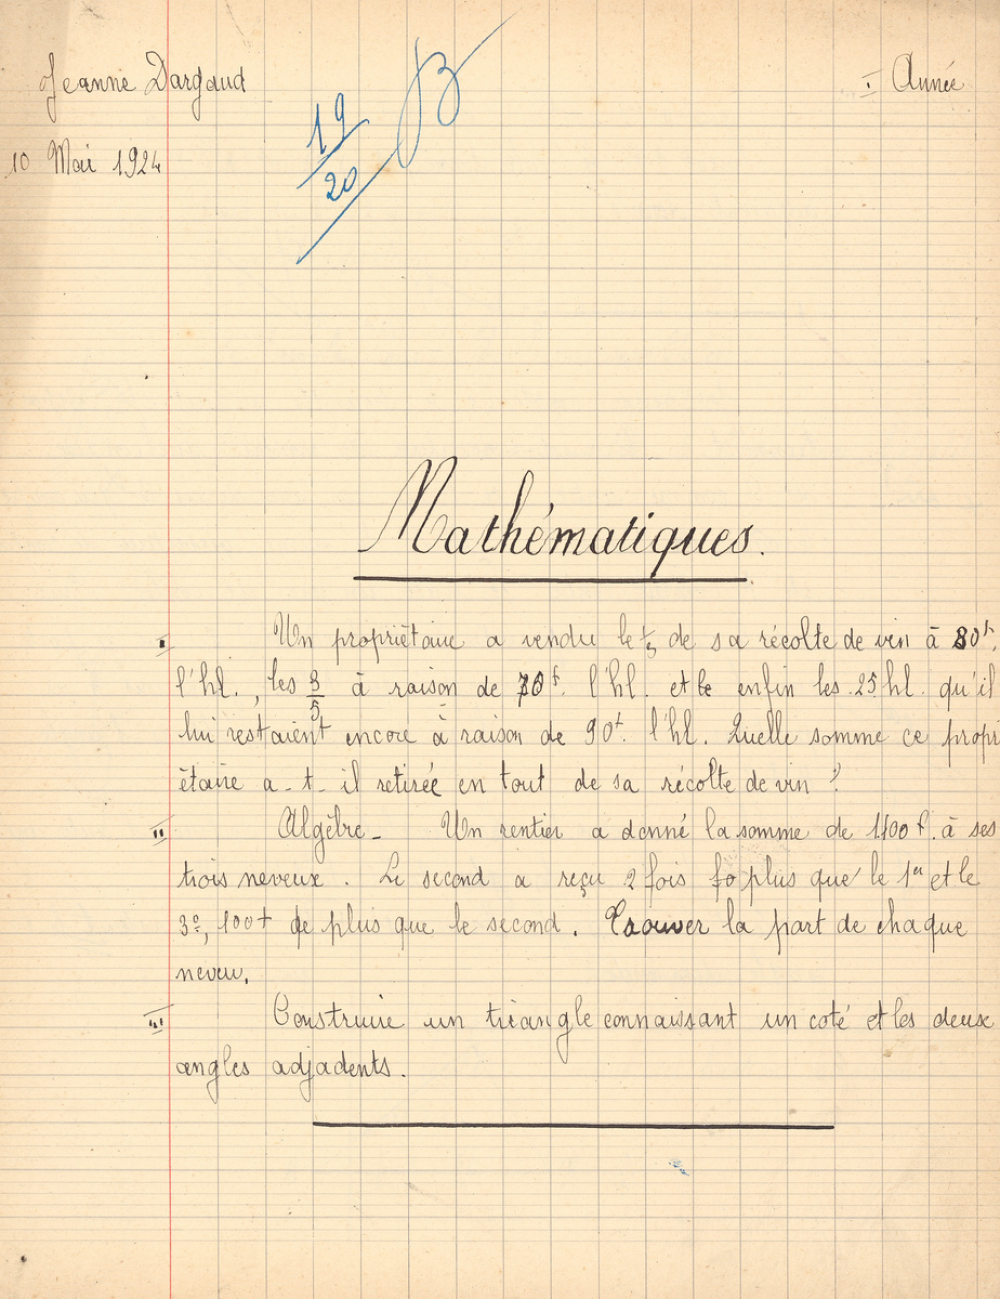 Jeanne Dargaud
I Année
10 Mai 1924
19/20 B
Mathématiques.
I Un propriétaire a vendu le 1/3 de sa récolte de vin à 80f.
l'hl., les 3/5 à raison de 70f. l'hl. et le enfin les 25 hl. qu'il
lui restaient encore à raison de 90f. l'hl. Quelle somme ce propri
étaire a-t-il retirée en tout de sa récolte de vin ?
II Algèbre - Un rentier a donné la somme de 1100 f. à ses
trois neveux. Le second a reçu 2 fois plus que le 1er et le
3e, 100f de plus que le second. Trouver la part de chaque
neveu.
III Construire un triangle connaissant un coté et les deux
angles adjadents.